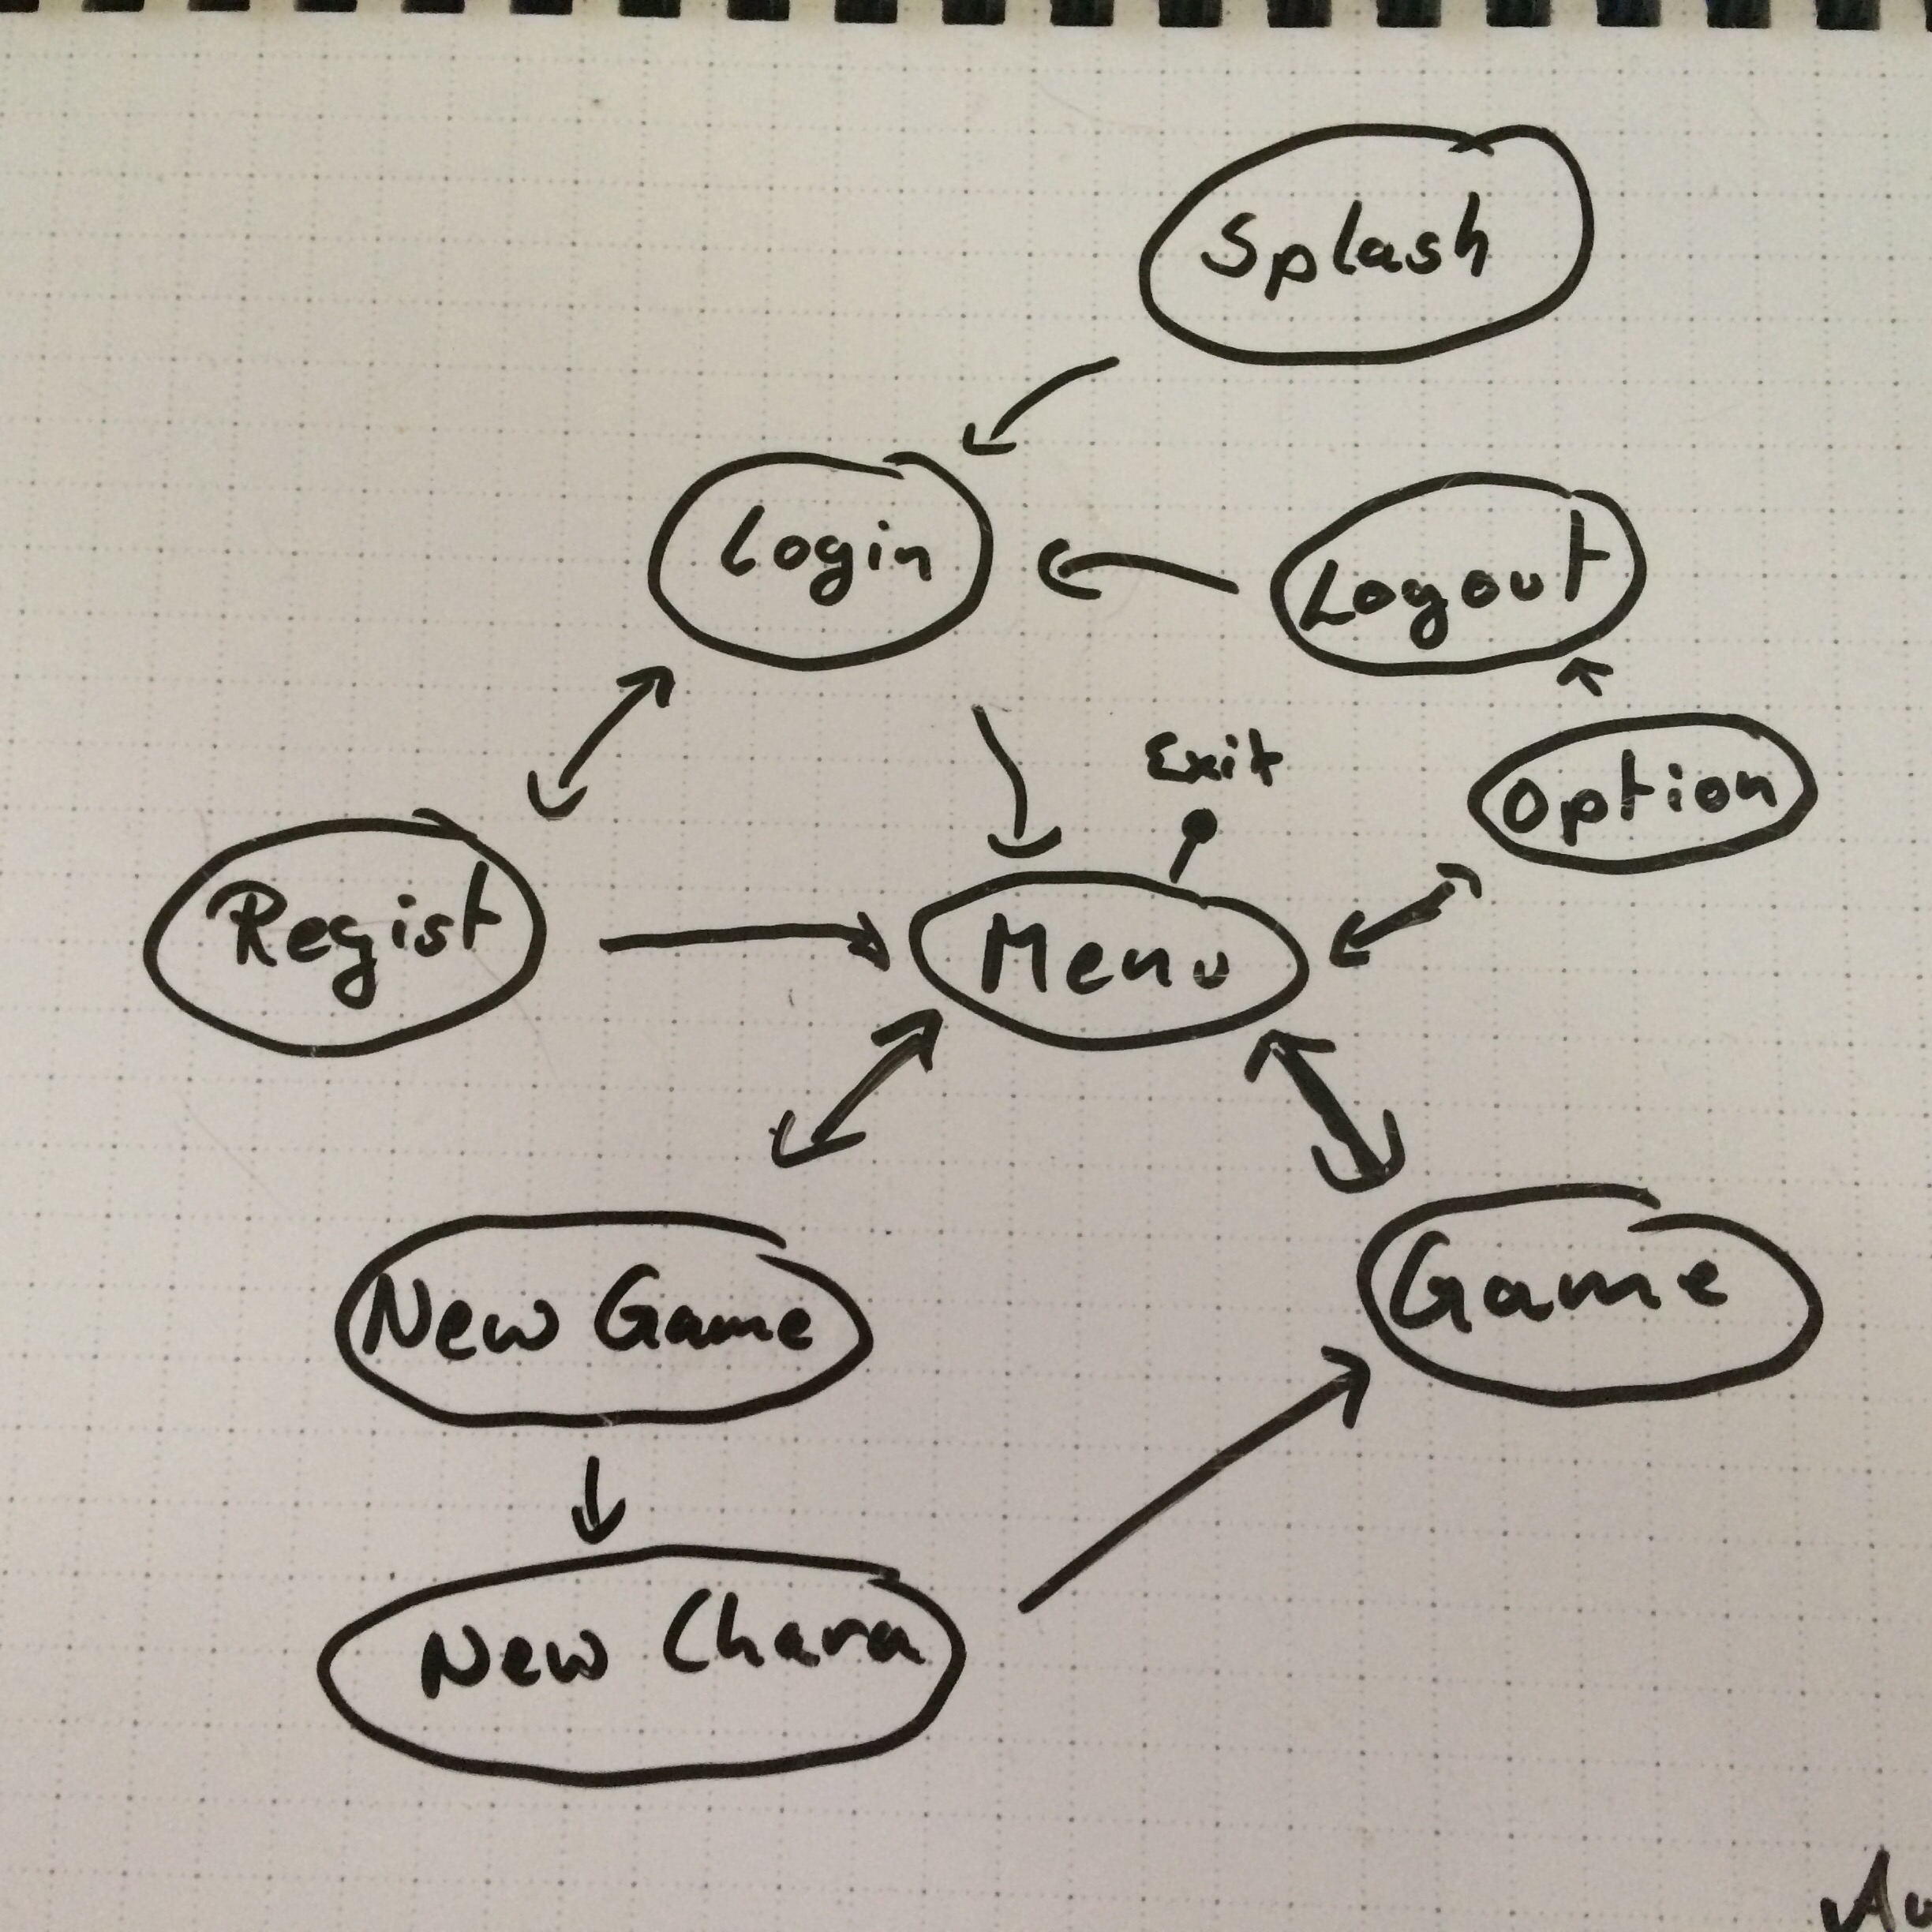 Splash
Login
Logout
Exit
Option
Regist
Menu
New Game
Game
New Chara